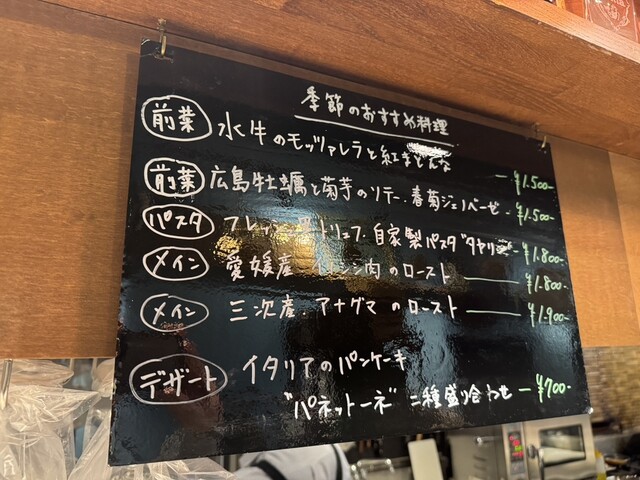 季節のおすすめ料理
前菜 水牛のモッツァレラと紅まどんな ー ¥1.500-
前菜 広島牡蠣と菊芋のソテー、春菊ジェノベーゼ ー ¥1.500-
パスタ フレッシュトリュフ、自家製パスタ"タヤリン" ー ¥1.800-
メイン 愛媛産 イノシシ肉のロースト ー ¥1.800-
メイン 三次産、アナグマのロースト ー ¥1.900-
デザート イタリアのパンケーキ
"パネットーネ" 二種盛り合わせ ー ¥700-